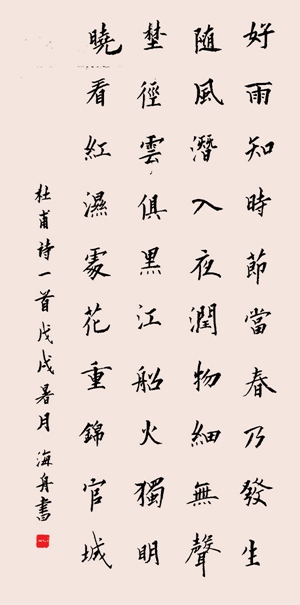 好雨知時節當春乃發生
随風潛入夜潤物細無聲
埜徑雲俱黑江船火獨明
曉看紅濕處花重錦官城
杜甫詩一首戊戌暑月海舟書